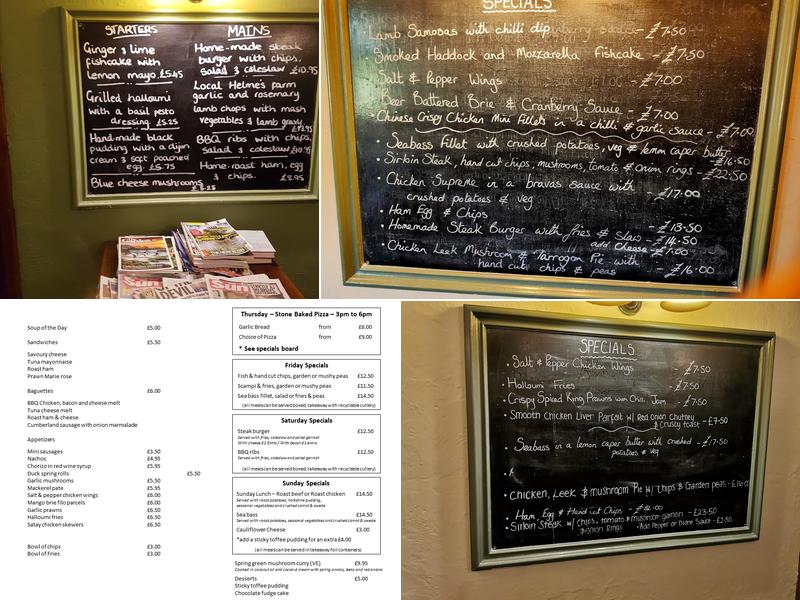 STARTERS
Ginger & lime
fishcake with
lemon mayo £5.45
Grilled halloumi
with a basil pesto
dressing. £5.25
Hand-made black
pudding with a dijon
cream & soft poached
egg. £5.75
Blue cheese mushrooms
£5.25
MAINS
Home-made steak
burger with chips,
salad & coleslaw £10.95
Local Helme's farm
garlic and rosemary
lamb chops with mash
vegetables & lamb gravy
£12.95
BBQ ribs with chips,
salad & coleslaw £10.95
Home-roast ham, egg
& chips. £8.95
Sun
SPECIALS
Lamb Samosas with chilli dip - £7.50
Smoked Haddock and Mozzarella Fishcake - £7.50
Salt & Pepper Wings - £7.00
Beer Battered Brie & Cranberry Sauce - £7.00
Chinese Crispy Chicken Mini Fillets in a chilli & garlic sauce - £7.00
• Seabass Fillet with crushed potatoes, veg & lemon caper butter
- £16.50
• Sirloin Steak, hand cut chips, mushrooms, tomato & onion rings - £22.50
• Chicken Supreme in a bravas sauce with
crushed potatoes & veg - £17.00
• Ham Egg & Chips - £13.50
• Homemade Steak Burger with fries & Slaw - £14.50
add cheese - £1.00
• Chicken Leek Mushroom & Tarragon Pie with
hand cut chips & peas - £16.00
Soup of the Day £5.00
Sandwiches £5.50
Savoury cheese
Tuna mayonnaise
Roast ham
Prawn Marie rose
Baguettes £6.00
BBQ Chicken, bacon and cheese melt
Tuna cheese melt
Roast ham & cheese
Cumberland sausage with onion marmalade
Appetizers
Mini sausages £3.50
Nachos £4.95
Chorizo in red wine syrup £5.95
Duck spring rolls £5.50
Garlic mushrooms £5.50
Mackerel pate £5.95
Salt & pepper chicken wings £6.00
Mango brie filo parcels £6.00
Garlic prawns £6.50
Halloumi fries £6.50
Satay chicken skewers £6.50
Bowl of chips £3.00
Bowl of Fries £3.00
Thursday – Stone Baked Pizza – 3pm to 6pm
Garlic Bread from £6.00
Choice of Pizza from £9.00
* See specials board
Friday Specials
Fish & hand cut chips, garden or mushy peas £12.50
Scampi & fries, garden or mushy peas £11.50
Sea bass fillet, salad or fries & peas £14.50
(all meals can be served boxed, takeaway with recyclable cutlery)
Saturday Specials
Steak burger £12.50
Served with fries, coleslaw and salad garnish
With cheese £1 Extra / With bacon £1 extra
BBQ ribs £12.50
Served with fries, coleslaw and salad garnish
(all meals can be served boxed, takeaway with recyclable cutlery)
Sunday Specials
Sunday Lunch – Roast beef or Roast chicken £14.50
Served with roast potatoes, Yorkshire pudding,
seasonal vegetables and crushed carrot & swede
Sea bass £14.50
Served with roast potatoes, seasonal vegetables and crushed carrot & swede
Cauliflower Cheese £3.00
*add a sticky toffee pudding for an extra £4.00
(all meals can be served in takeaway foil containers)
Spring green mushroom curry (VE) £9.95
Cooked in coconut oil and coconut cream with spring onions, beans and red onions
Desserts £5.00
Sticky toffee pudding
Chocolate fudge cake
SPECIALS
• Salt & Pepper Chicken Wings - £7.50
• Halloumi Fries - £7.50
• Crispy Spiced King Prawns with Chilli Jam - £7.50
• Smooth Chicken Liver Parfait w/ Red Onion Chutney
& Crusty toast - £7.50
• Seabass in a lemon caper butter with crushed
potatoes & veg - £17.50
• Chicken, Leek & mushroom Pie w/ Chips & Garden peas - £16.00
• Ham, Egg & Hand Cut Chips - £14.00
• Sirloin Steak w/ chips, tomato & mushroom garnish - £23.50
& onion Rings • Add Pepper or Diane Sauce - £2.50